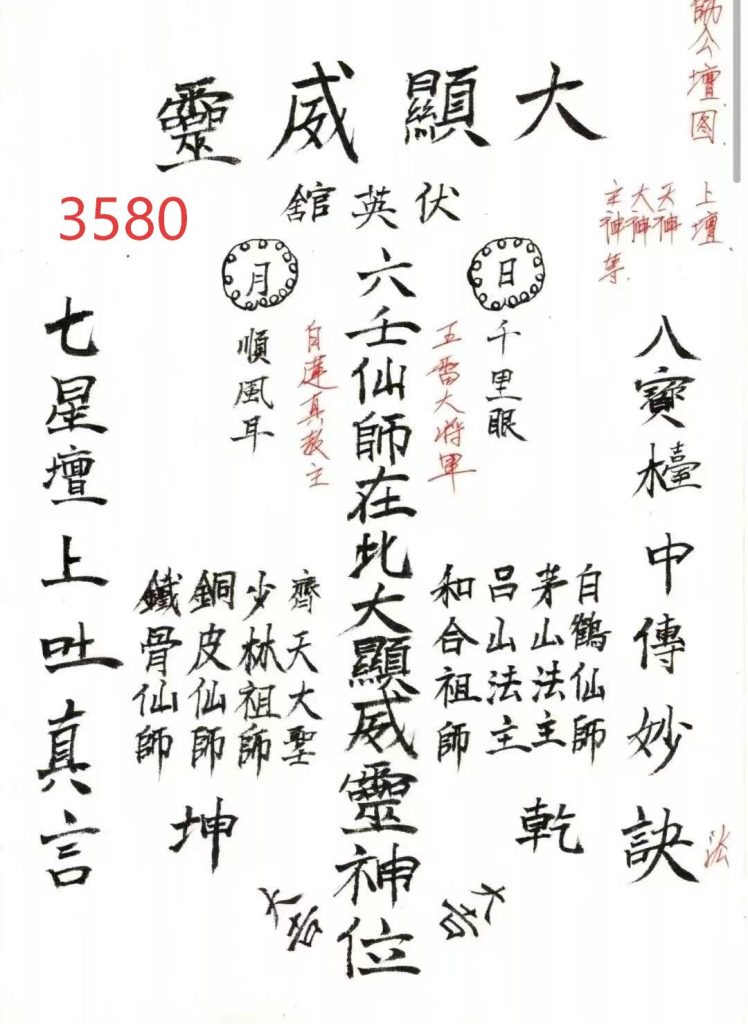 大顯威靈
伏英舘
3580
公壇图
上壇
天神
大神
主神等
八寶檯中傳妙訣
法
日
千里眼
五雷大将軍
白鶴仙師
茅山法主
呂山法主
和合祖師
乾
大吉
六壬仙師在此大顯威靈神位
月
白蓮真教主
順風耳
齊天大聖
少林祖師
銅皮仙師
鐵骨仙師
坤
大吉
七星壇上吐真言